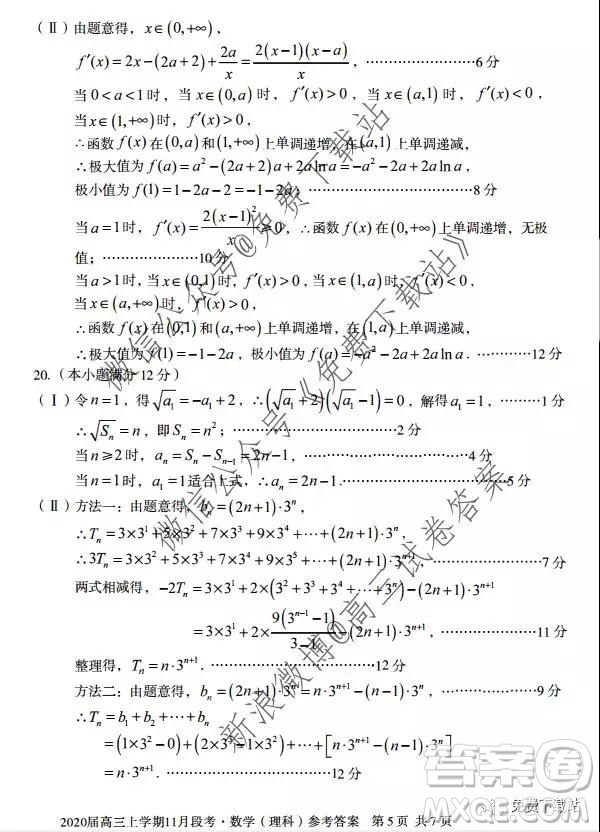 (Ⅱ)由题意得，x∈(0,+∞)，
f′(x)=2x−(2a+2)+2a/x=2(x−1)(x−a)/x，……………………6分
当0<a<1时，当x∈(0,a)时，f′(x)>0，当x∈(a,1)时，f′(x)<0，
当x∈(1,+∞)时，f′(x)>0，
∴函数f(x)在(0,a)和(1,+∞)上单调递增，在(a,1)上单调递减，
∴极大值为f(a)=a²−(2a+2)a+2a ln a=−a²−2a+2a ln a，
极小值为f(1)=1−2a−2=−1−2a．……………………8分
当a=1时，f′(x)=2(x−1)²/x≥0，∴函数f(x)在(0,+∞)上单调递增，无极
值；……………………10分
当a>1时，当x∈(0,1)时，f′(x)>0，当x∈(1,a)时，f′(x)<0，
当x∈(a,+∞)时，f′(x)>0，
∴函数f(x)在(0,1)和(a,+∞)上单调递增，在(1,a)上单调递减，
∴极大值为f(1)=−1−2a，极小值为f(a)=−a²−2a+2a ln a．………12分
20.（本小题满分12分）
(Ⅰ)令n=1，得√a₁=−a₁+2，∴(√a₁+2)(√a₁−1)=0，解得a₁=1，………1分
∴√Sₙ=n，即Sₙ=n²；……………………2分
当n≥2时，aₙ=Sₙ−Sₙ₋₁=2n−1，……………………4分
当n=1时，a₁=1适合上式，∴aₙ=2n−1．……………………5分
(Ⅱ)方法一：由题意得，bₙ=(2n+1)·3ⁿ，
∴Tₙ=3×3¹+5×3²+7×3³+9×3⁴+⋯+(2n+1)·3ⁿ，
∴3Tₙ=3×3²+5×3³+7×3⁴+9×3⁵+⋯+(2n+1)·3ⁿ⁺¹，……………………7分
两式相减得，−2Tₙ=3×3¹+2×(3²+3³+3⁴+⋯+3ⁿ)−(2n+1)·3ⁿ⁺¹
=3×3¹+2×9(3ⁿ⁻¹−1)/(3−1)−(2n+1)·3ⁿ⁺¹，……………………11分
整理得，Tₙ=n·3ⁿ⁺¹．……………………12分
方法二：由题意得，bₙ=(2n+1)·3ⁿ=n·3ⁿ⁺¹−(n−1)·3ⁿ，……………………9分
∴Tₙ=b₁+b₂+⋯+bₙ
=(1×3²−0)+(2×3³−1×3²)+⋯+[n·3ⁿ⁺¹−(n−1)·3ⁿ]
=n·3ⁿ⁺¹．……………………12分
2020届高三上学期11月段考·数学（理科）参考答案 第5页 共7页
微信公众号@免费下载站
微信公众号《免费下载站》
新浪微博@高三试卷答案
答案圈
免费下载站